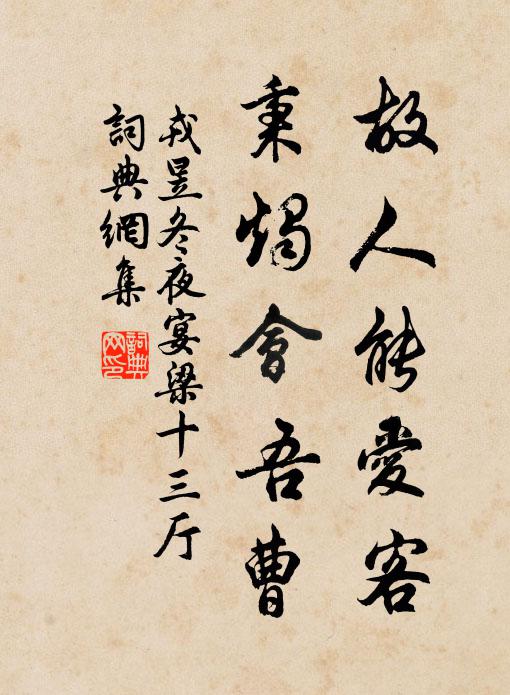 故人能愛客
秉燭會吾曹
戎昱冬夜宴梁十三厅
詞典網集
詞典网印